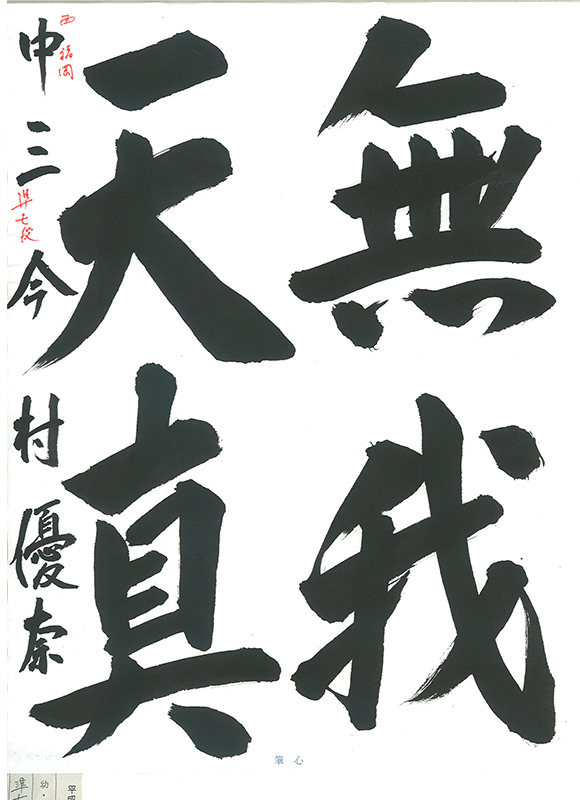 無我
天真
中三 今村優奈
西福岡
準七段
心筆
準七
幼・
平成